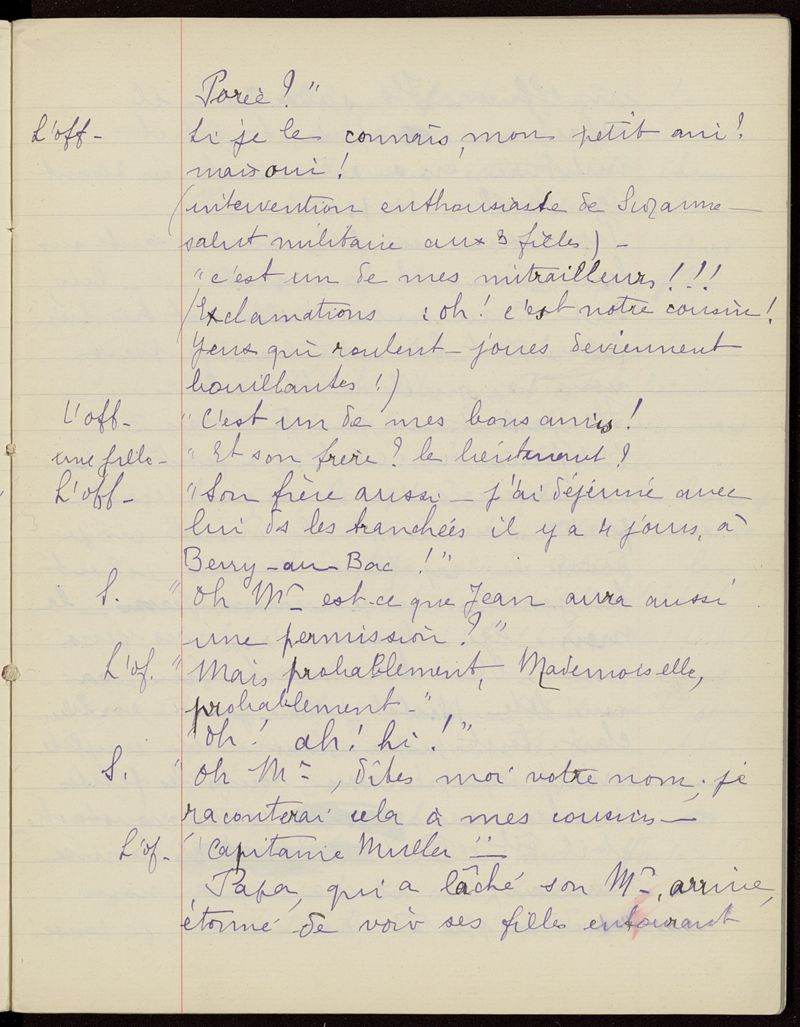 Porée ? "
L'off - Si je le connais, mon petit ami !
mais oui !
(intervention enthousiaste de Suzanne -
salut militaire aux 3 filles) -
" c'est un de mes mitrailleurs !!!
(Exclamations : oh ! c'est notre cousin !
Yeux qui roulent - joues deviennent
bouillantes !)
L'off - " C'est un de mes bons amis !
une fille - " Et son frère ? le lieutenant ?
L'off - " Son frère aussi - j'ai déjeuné avec
lui ds les tranchées il y a 4 jours, à
Berry-au-Bac ! "
S. " Oh Mr est-ce que Jean aura aussi
une permission ? "
L'of. " Mais probablement, Mademoiselle,
probablement - "
" Oh ! ah ! hi ! "
S. " Oh Mr, dîtes moi votre nom, je
raconterai cela à mes cousins -
L'of - " Capitaine Muller "
Papa, qui a lâché son Mr, arrive,
étonné de voir ses filles entourant